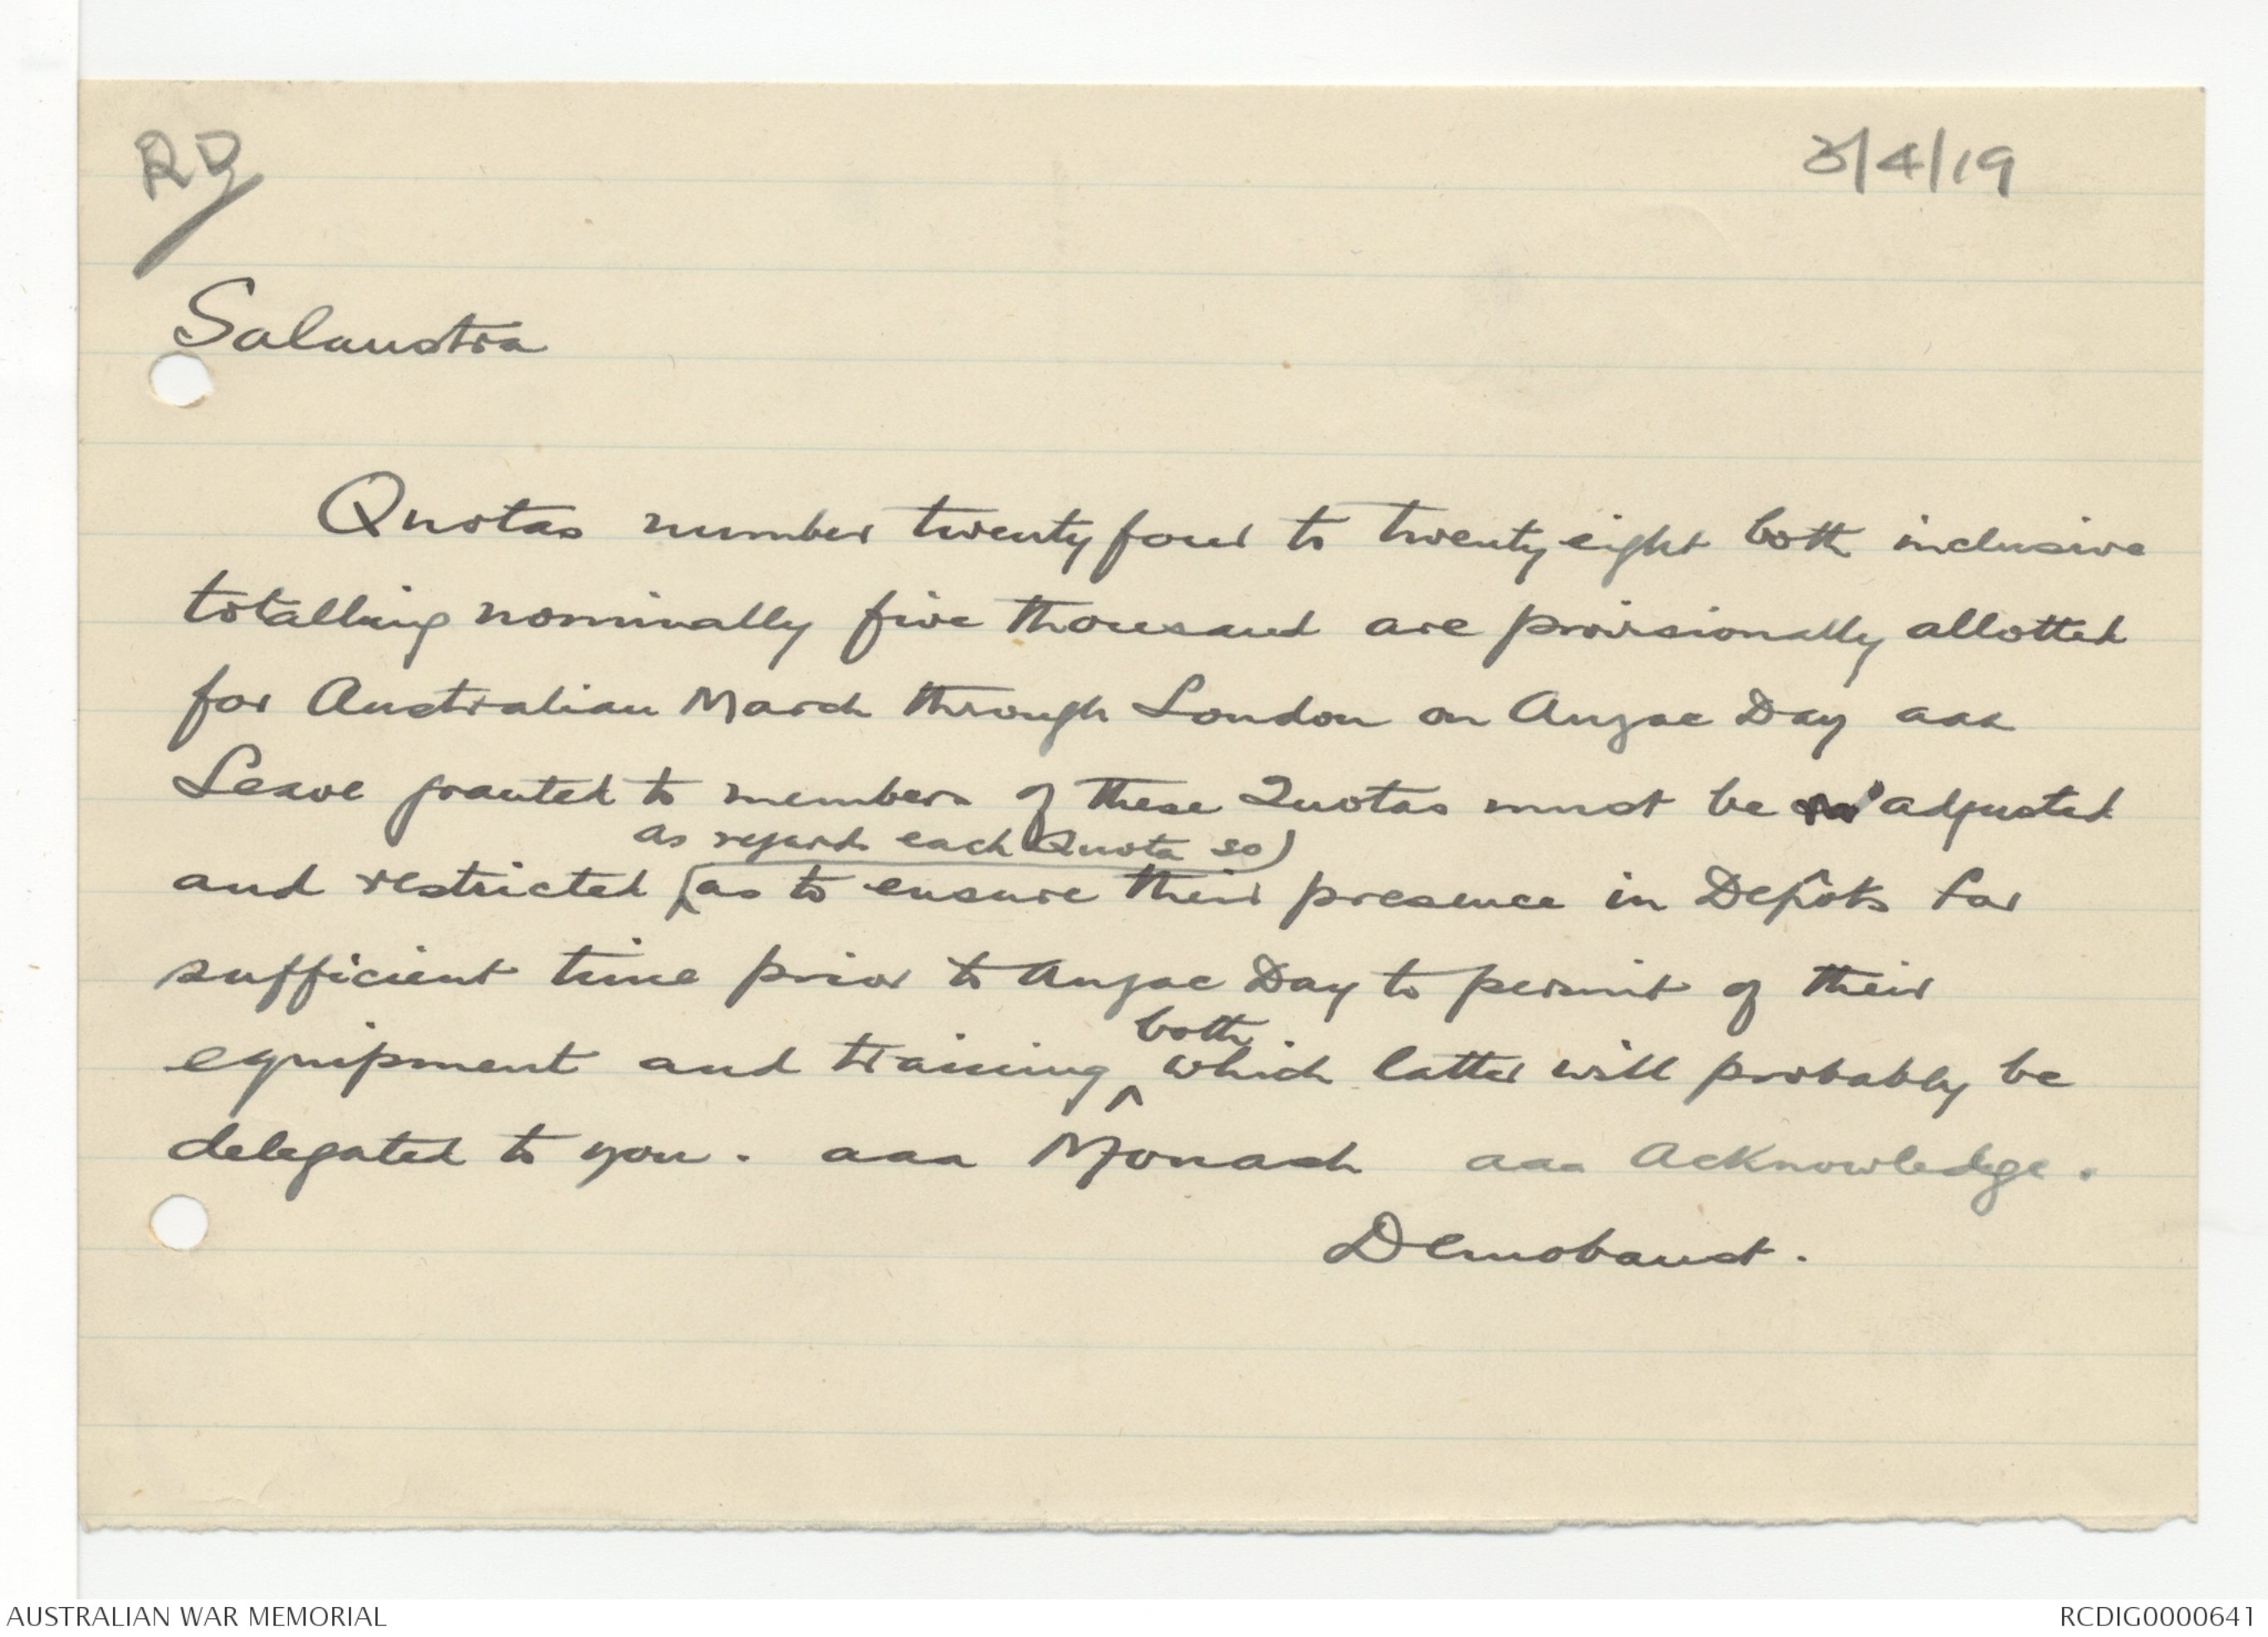 RD
3/4/19
Salaustra
Quotas number twenty four to twenty eight both inclusive
totalling nominally five thousand are provisionally allotted
for Australian March through London on Anzac Day aaa
Leave granted to members of these Quotas must be adjusted
as regards each Quota so)
and restricted (as to ensure their presence in Depôts for
sufficient time prior to Anzac Day to permit of their
both
equipment and training ^ which latter will probably be
delegated to you. aaa Monash aaa Acknowledge.
Demobaust.
AUSTRALIAN WAR MEMORIAL
RCDIG0000641